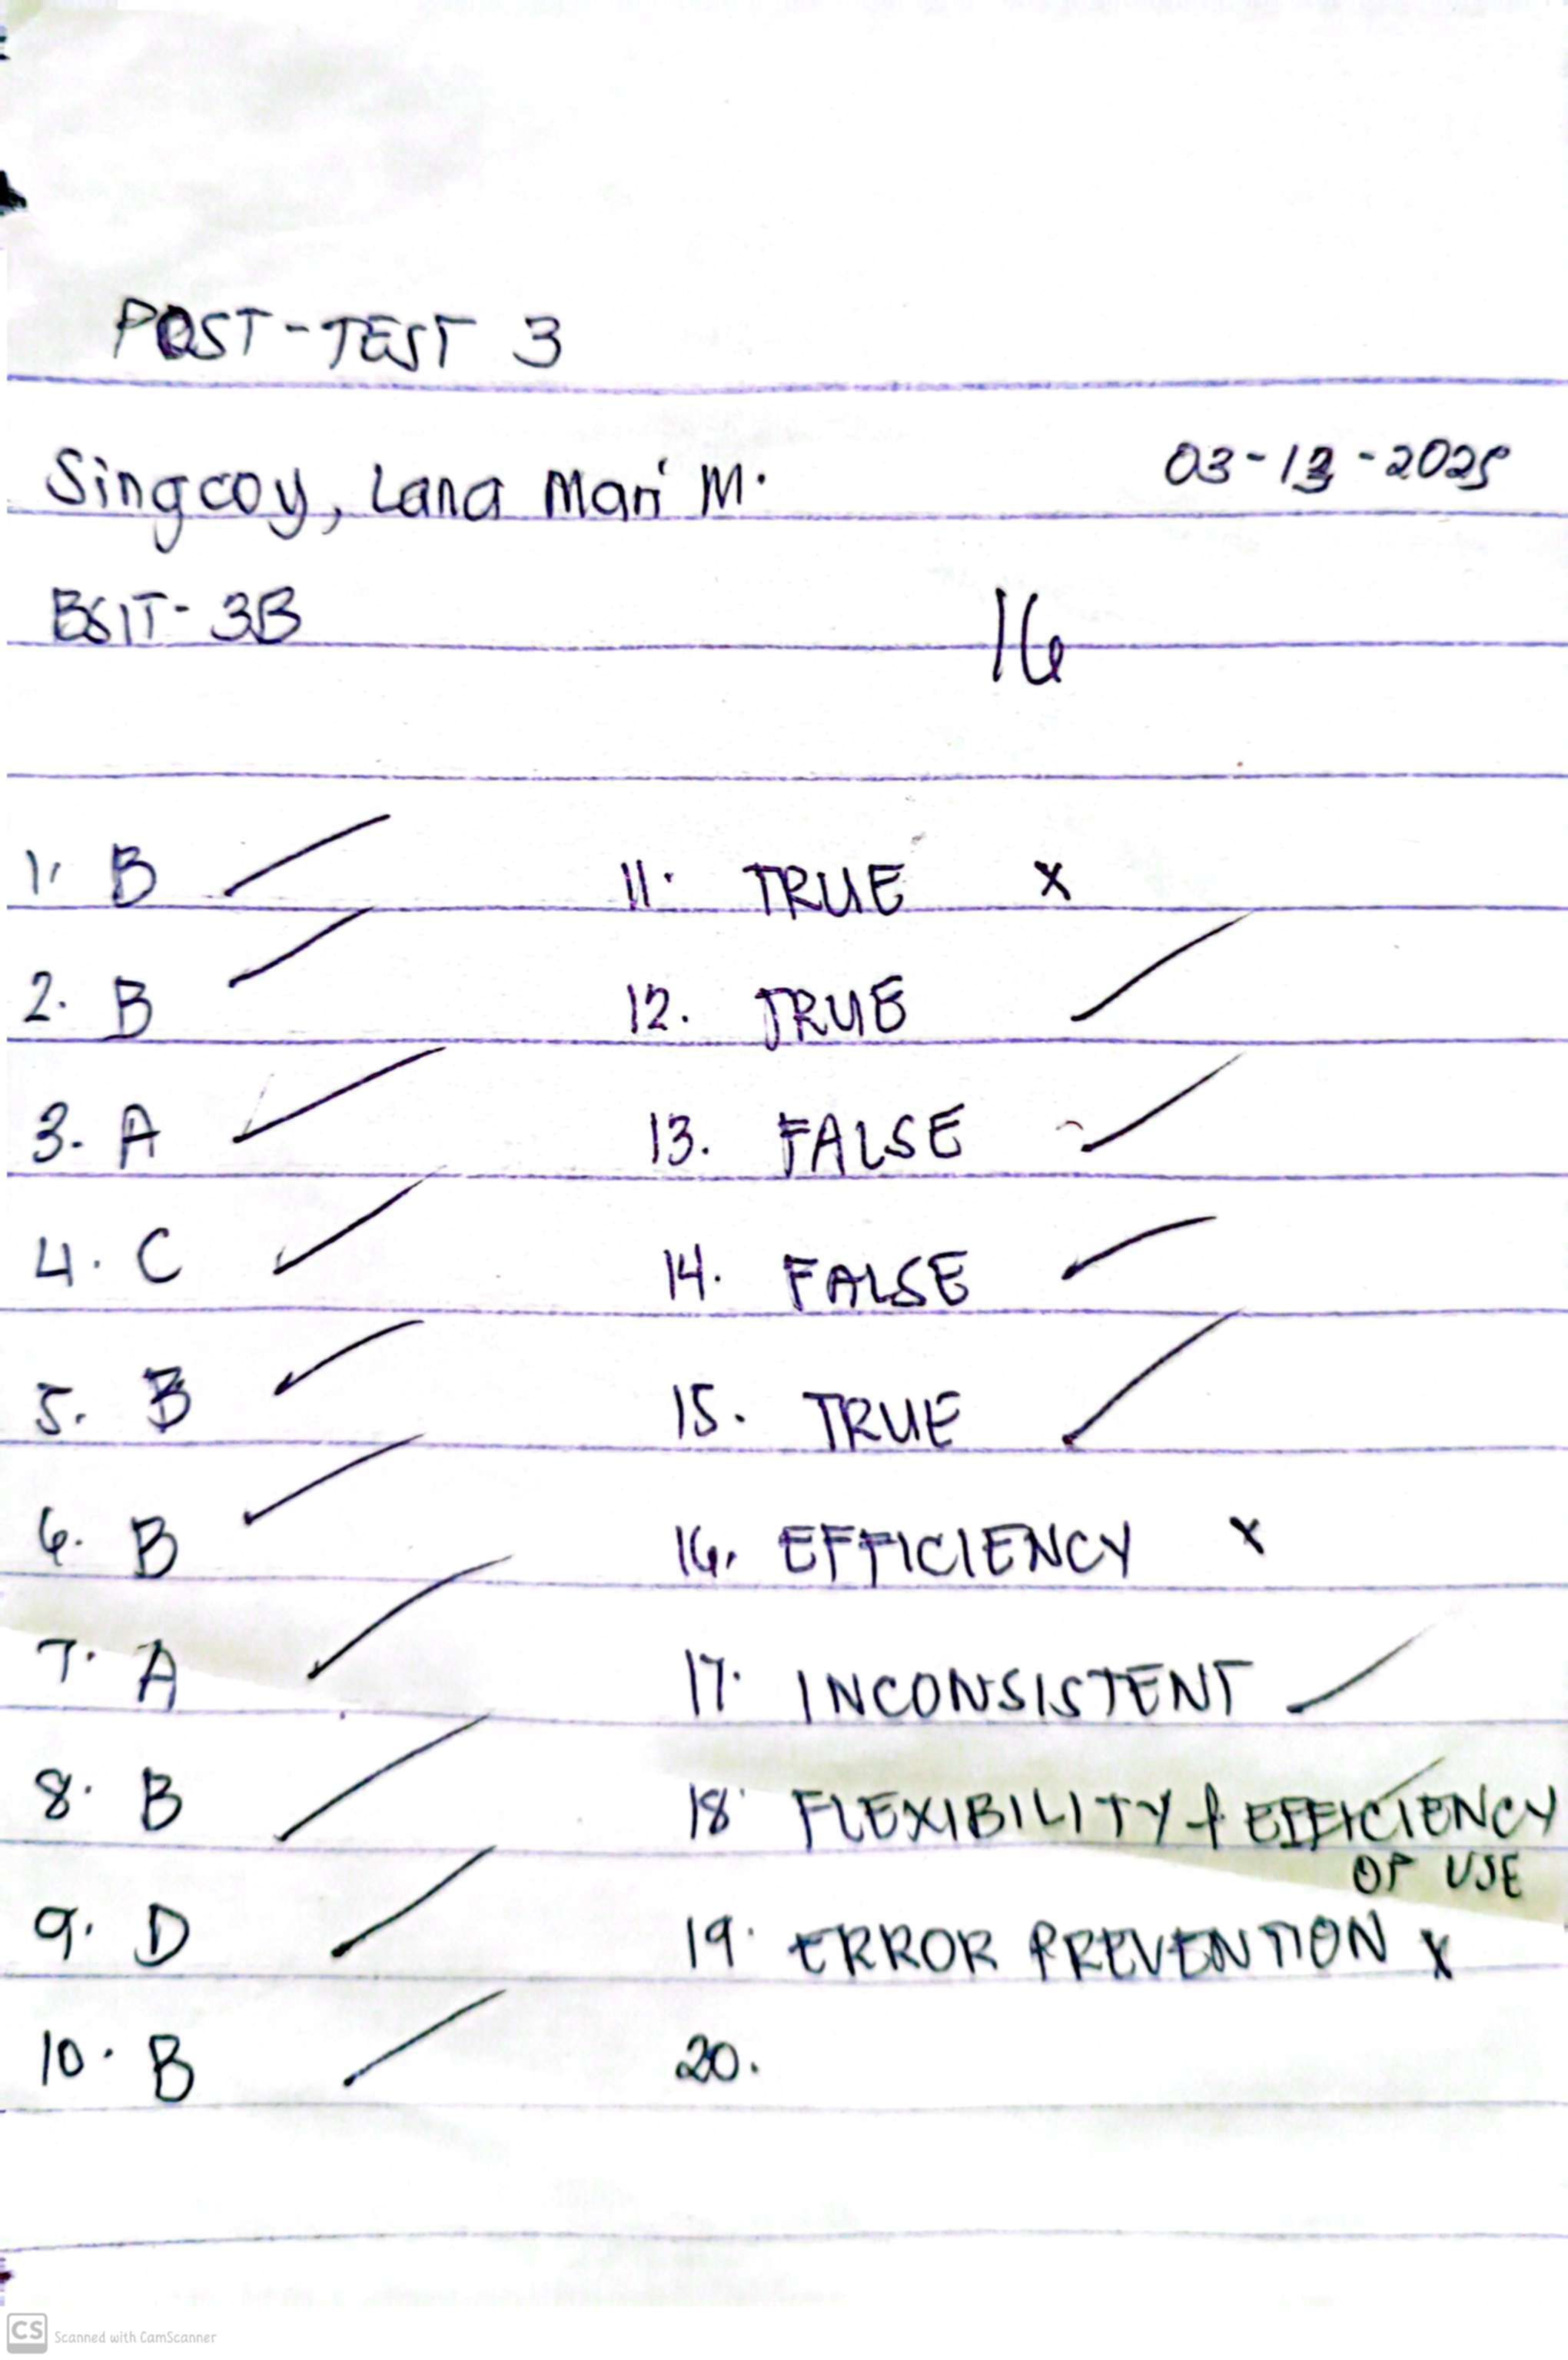 POST-TEST 3
Singcoy, Lana Mari M.
03-13-2025
BSIT-3B
16
1. B
2. B
3. A
4. C
5. B
6. B
7. A
8. B
9. D
10. B
11. TRUE x
12. TRUE
13. FALSE
14. FALSE
15. TRUE
16. EFFICIENCY x
17. INCONSISTENT
18. FLEXIBILITY & EFFICIENCY
OF USE
19. ERROR PREVENTION x
20.
CS Scanned with CamScanner